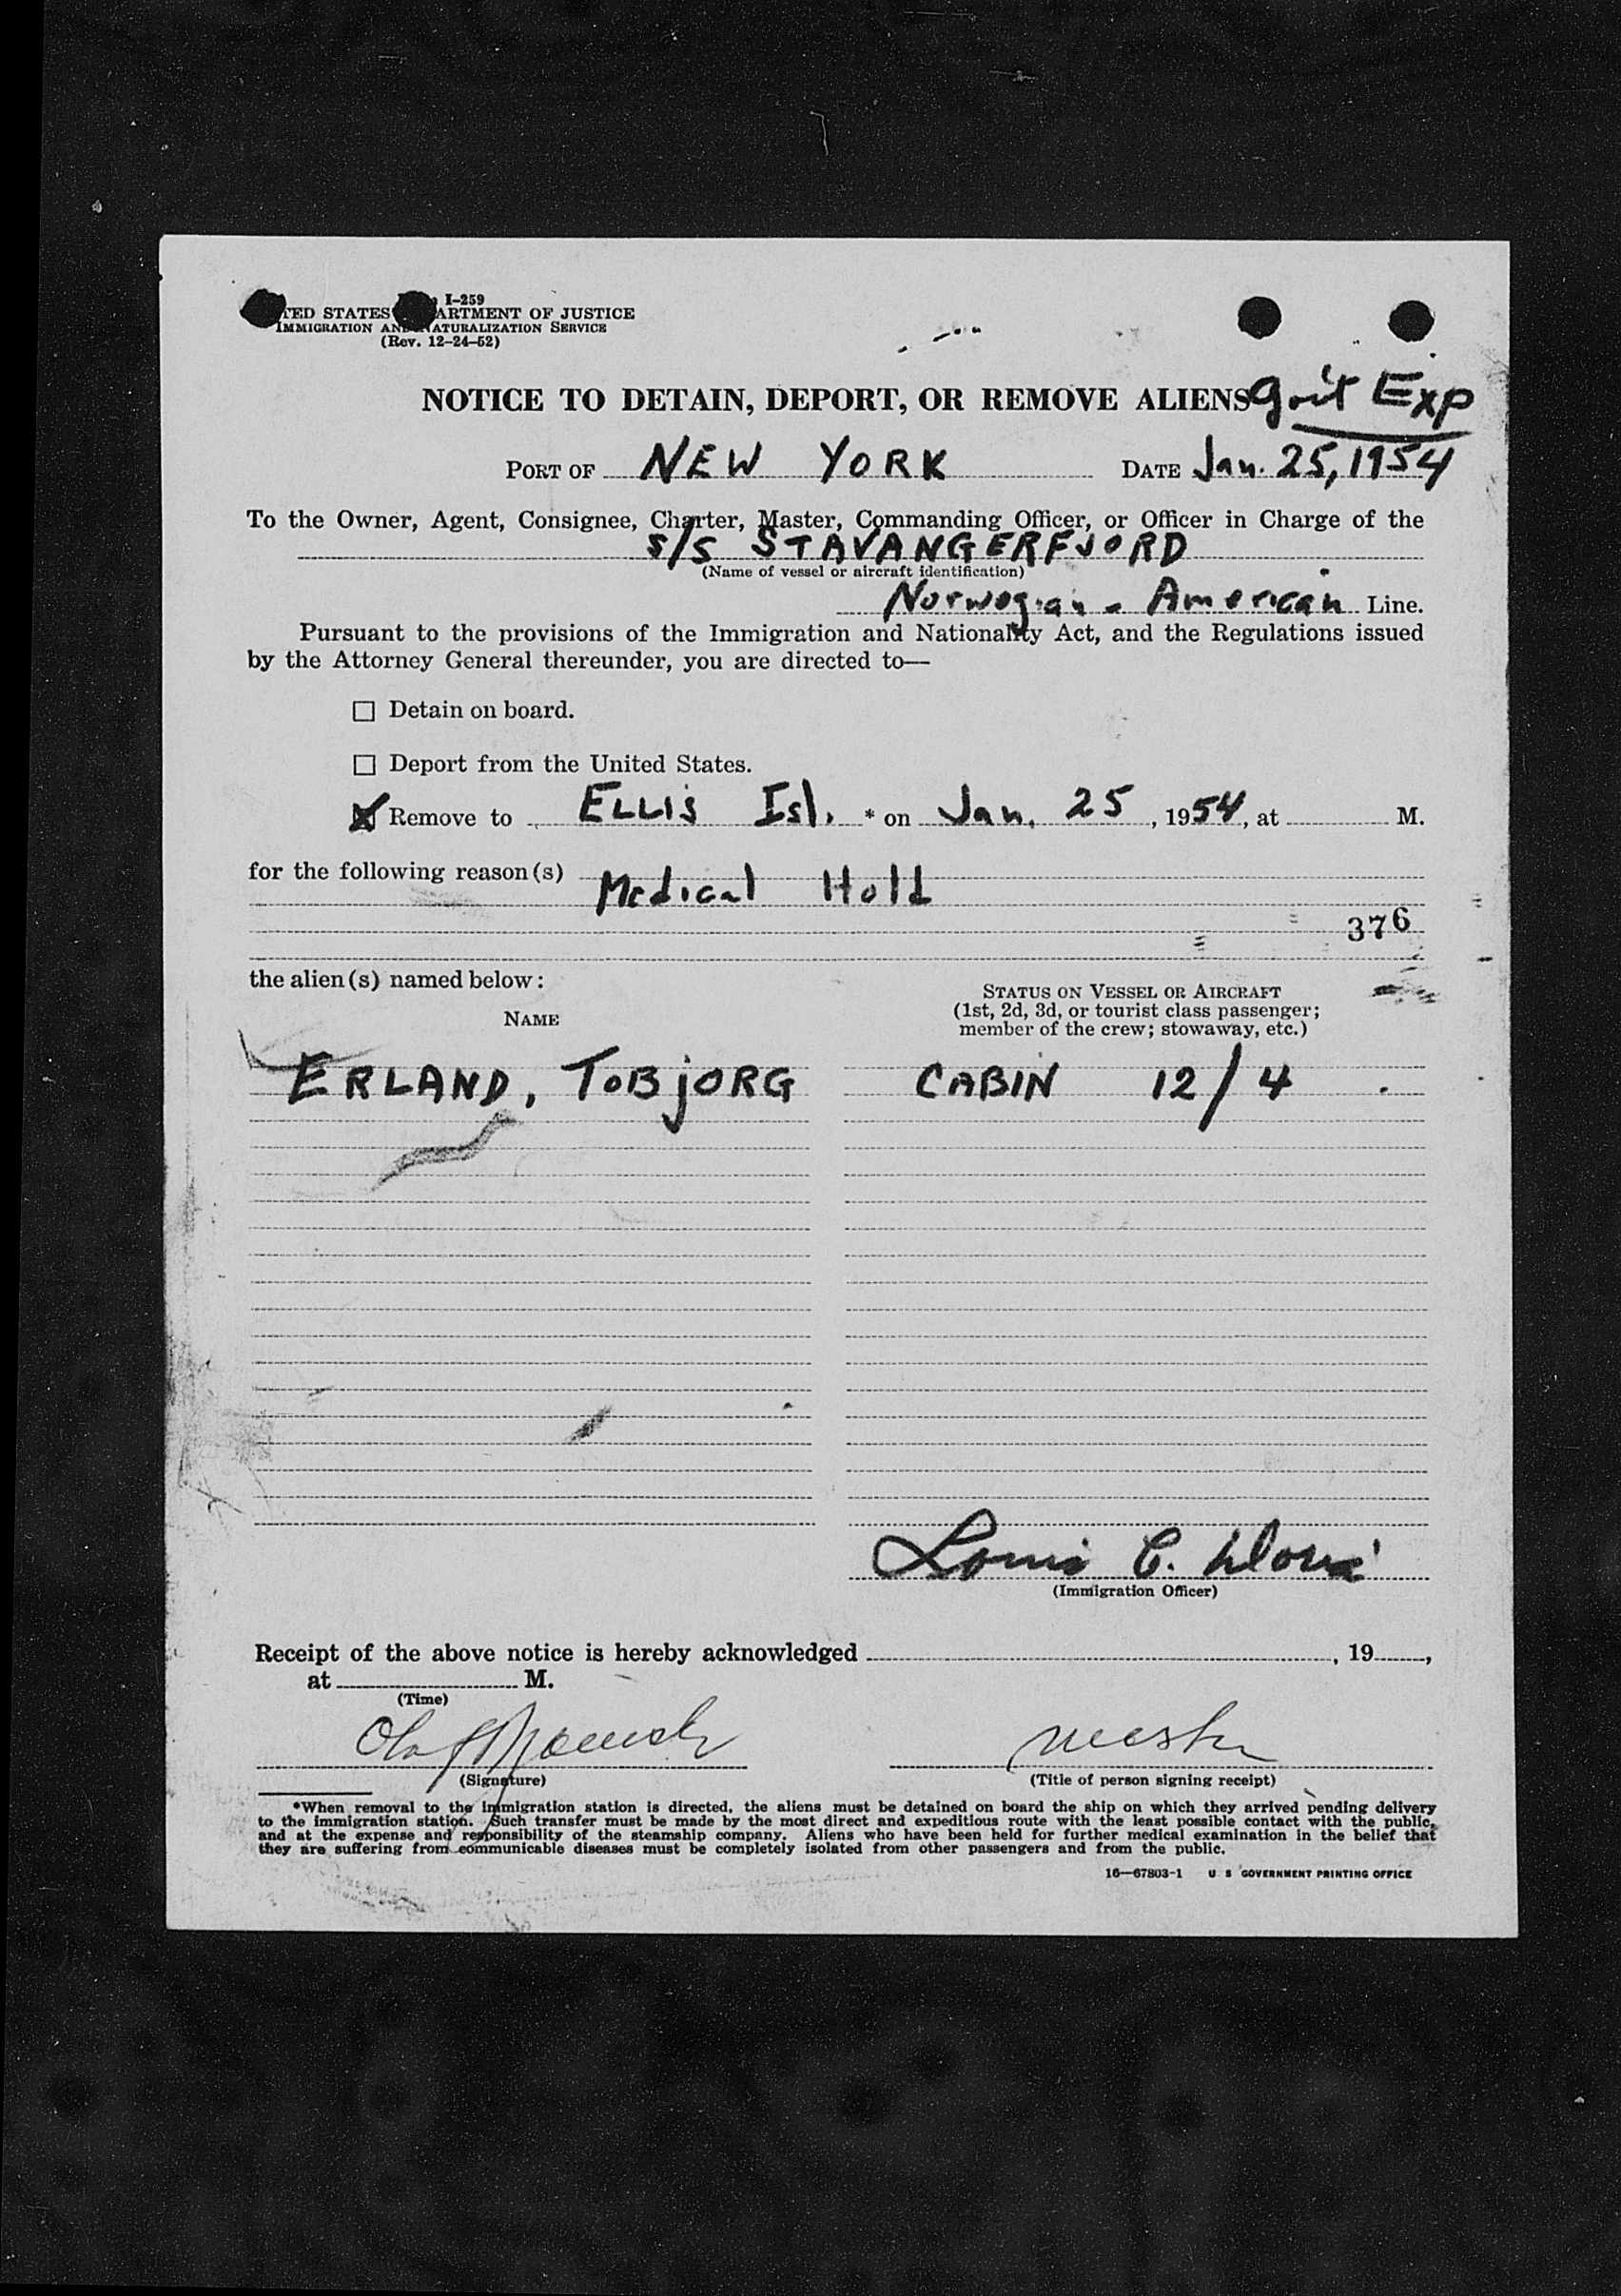 I-259
TED STATES ARTMENT OF JUSTICE
IMMIGRATION AND NATURALIZATION SERVICE
(Rev. 12-24-52)
NOTICE TO DETAIN, DEPORT, OR REMOVE ALIENS Gov't Exp
PORT OF NEW YORK DATE Jan. 25, 1954
To the Owner, Agent, Consignee, Charter, Master, Commanding Officer, or Officer in Charge of the
S/S STAVANGERFJORD
(Name of vessel or aircraft identification)
Norwegian - American Line.
Pursuant to the provisions of the Immigration and Nationality Act, and the Regulations issued
by the Attorney General thereunder, you are directed to—
☐ Detain on board.
☐ Deport from the United States.
☒ Remove to ELLIS Isl. * on Jan. 25, 1954, at M.
for the following reason(s)
Medical Hold
376
the alien(s) named below:
STATUS ON VESSEL OR AIRCRAFT
(1st, 2d, 3d, or tourist class passenger;
NAME
member of the crew; stowaway, etc.)
ERLAND, TOBJORG CABIN 12/4
Louis C.
(Immigration Officer)
Receipt of the above notice is hereby acknowledged , 19 ,
at M.
(Time)
Olaf
(Signature) (Title of person signing receipt)
*When removal to the immigration station is directed, the aliens must be detained on board the ship on which they arrived pending delivery
to the immigration station. Such transfer must be made by the most direct and expeditious route with the least possible contact with the public,
and at the expense and responsibility of the steamship company. Aliens who have been held for further medical examination in the belief that
they are suffering from communicable diseases must be completely isolated from other passengers and from the public.
16—67803-1 U S GOVERNMENT PRINTING OFFICE